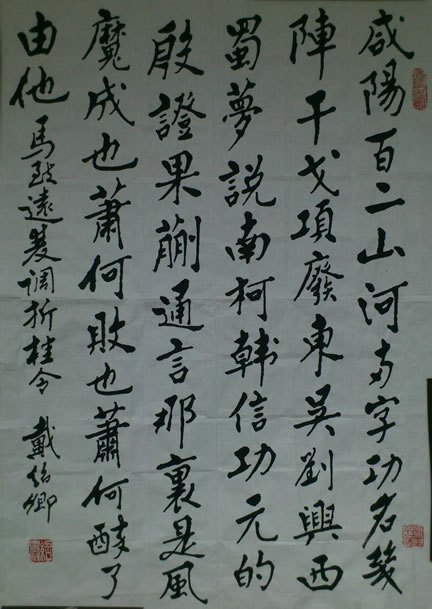 咸陽百二山河两字功名幾
陣干戈項廢東吳劉興西
蜀夢説南柯韓信功元的
般證果蒯通言那裏是風
魔成也蕭何敗也蕭何醉了
由他 馬致遠 调折桂令 戴紹卿